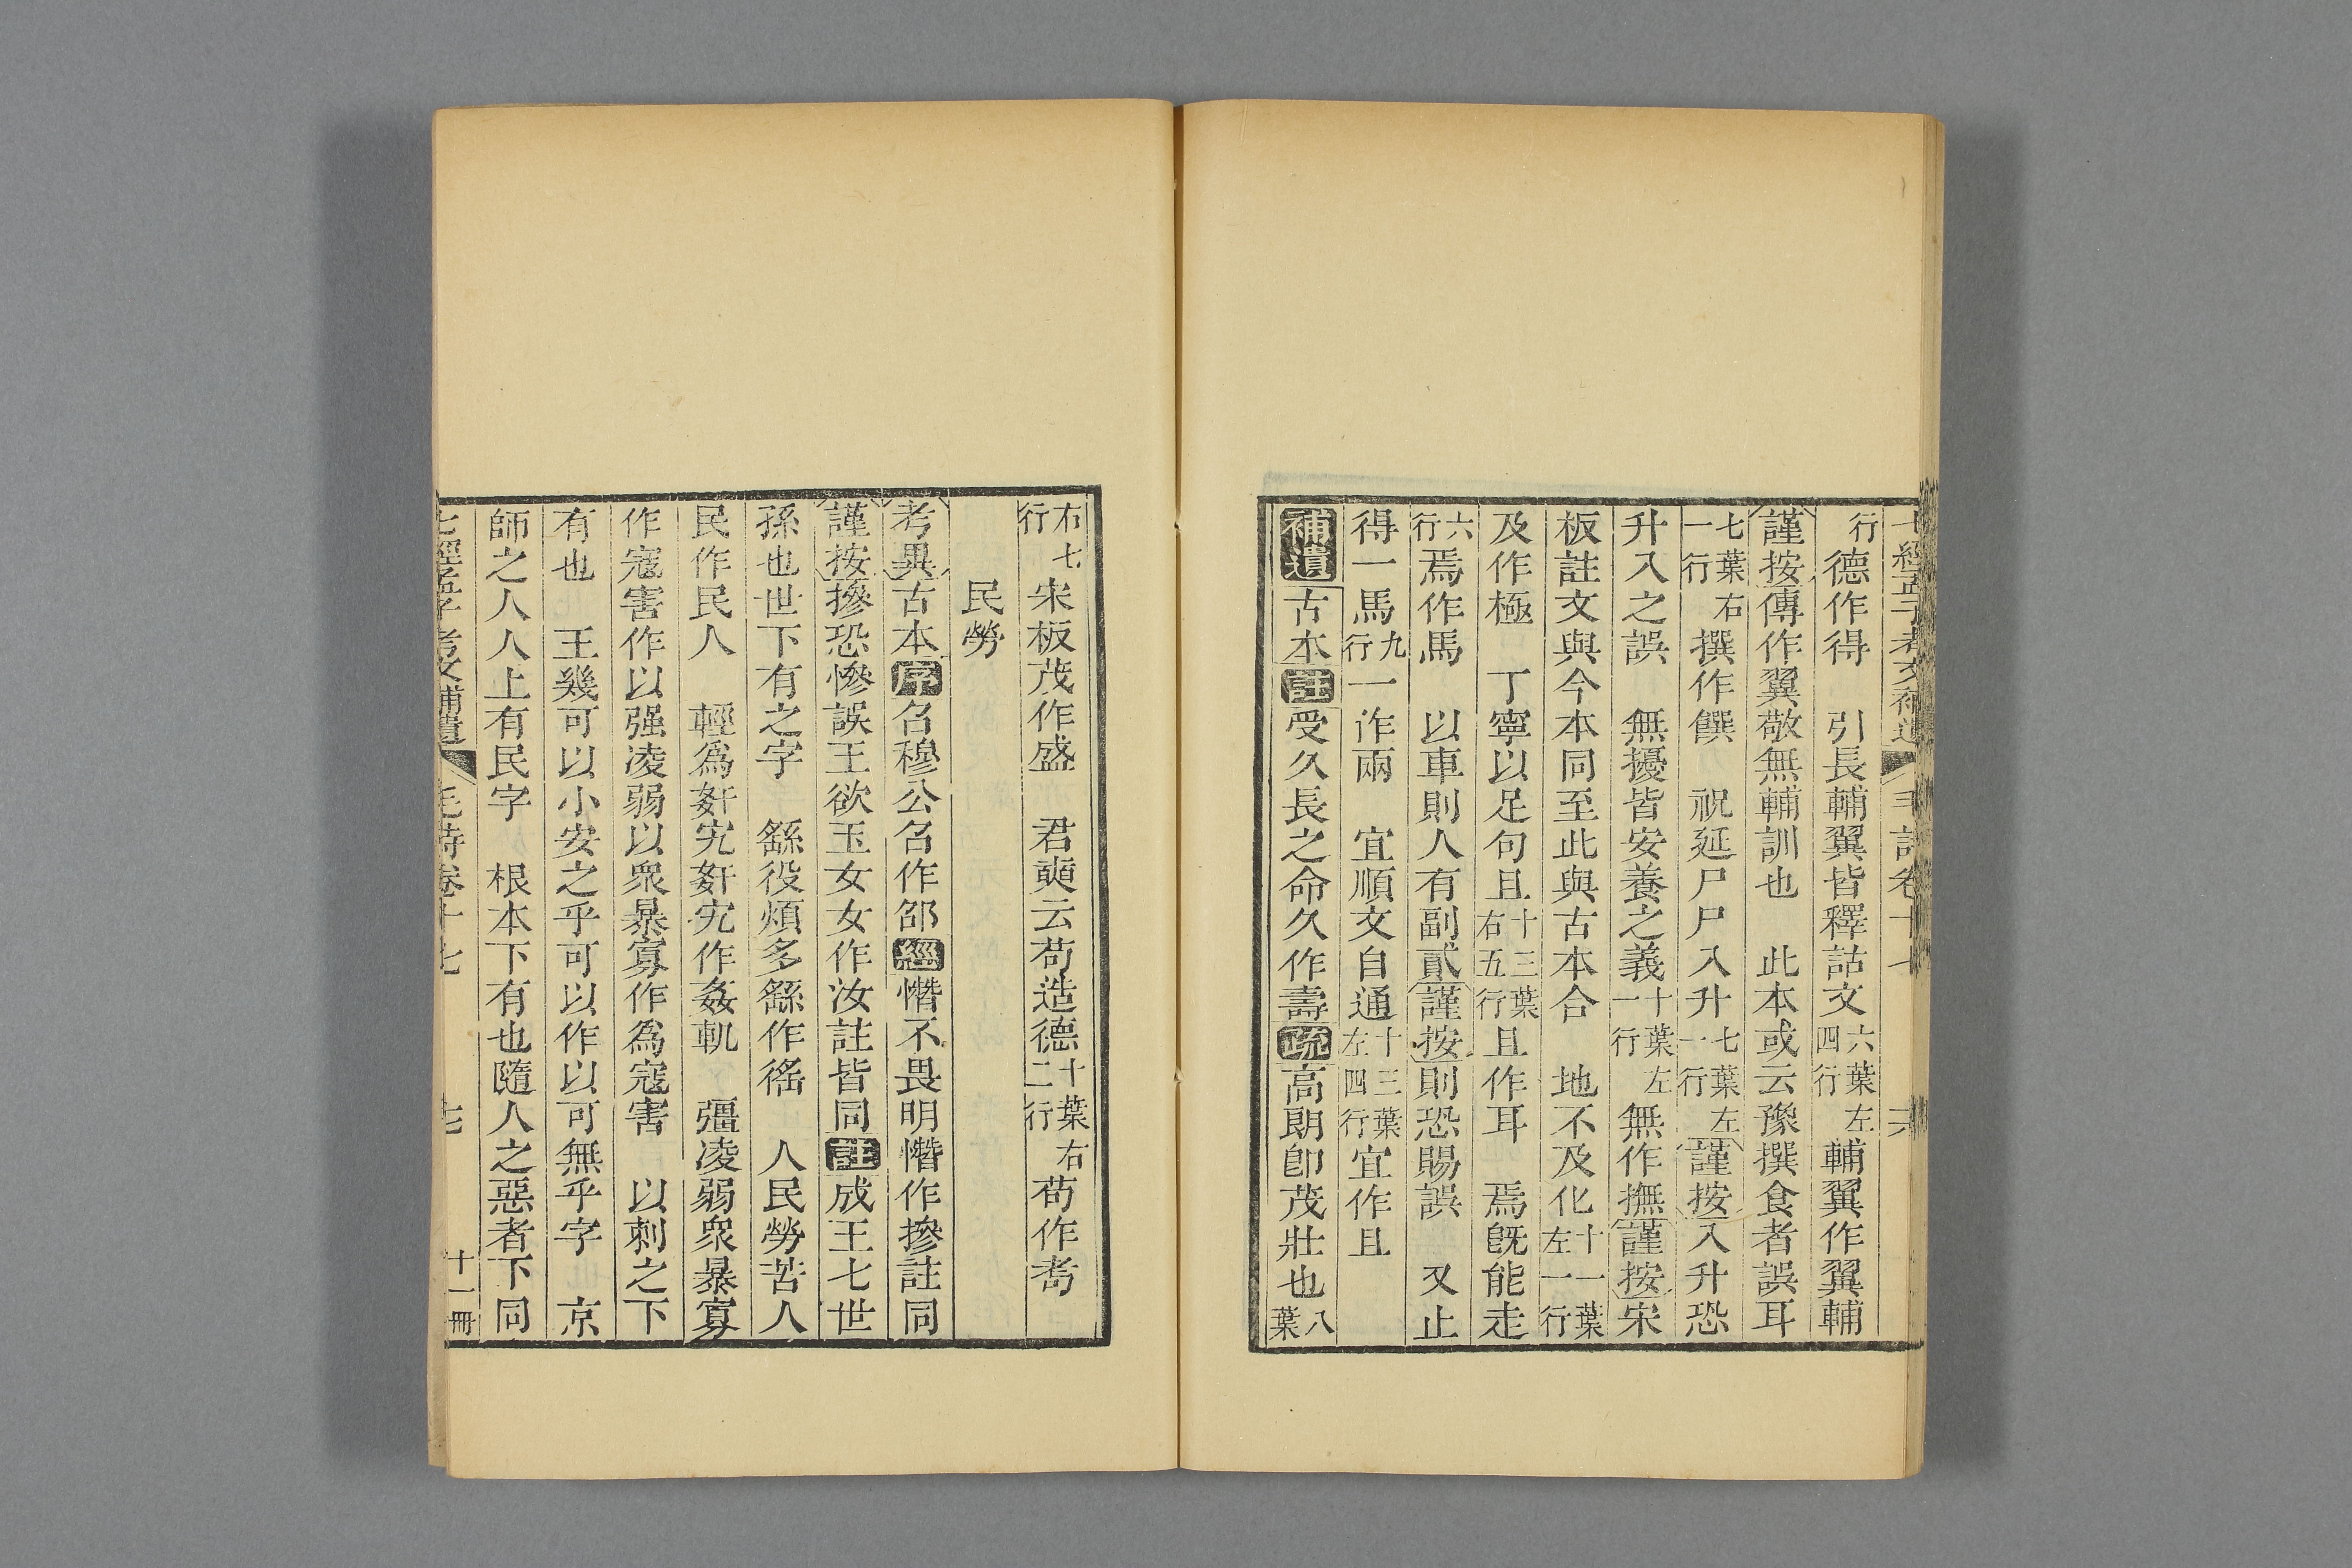 行德作得　引長輔翼皆釋詁文六葉左四行輔翼作翼輔
謹按傳作翼敬無輔訓也　此本或云豫撰食者誤耳
七葉右一行撰作饌　祝延尸尸入升七葉左一行謹按入升恐
升入之誤　無擾皆安養之義十葉左一行無作撫謹按宋
板註文與今本同至此與古本合　地不及化十一葉左一行
及作極　丁寧以足句且十三葉右五行且作耳　焉旣能走
六行焉作馬　以車則人有副貳謹按則恐賜誤　又止
得一馬九行一作兩　宜順文自通十三葉左四行宜作且
補遺古本註受久長之命久作壽疏高朗卽茂壯也八葉
右七行宋板茂作盛　君奭云苟造德十葉右二行苟作耇
民勞
考異古本序名穆公名作邵經憯不畏明憯作摻註同
謹按摻恐慘誤王欲玉女女作汝註皆同註成王七世
孫也世下有之字　繇役煩多繇作徭　人民勞苦人
民作民人　輕爲姧宄姧宄作姦軌　彊凌弱眾暴寡
作寇害作以强凌弱以眾暴寡作爲寇害　以刺之下
有也　王幾可以小安之乎可以作以可無乎字　京
師之人人上有民字　根本下有也隨人之惡者下同
七經孟子考文補遺　毛詩卷十七　七　十一冊